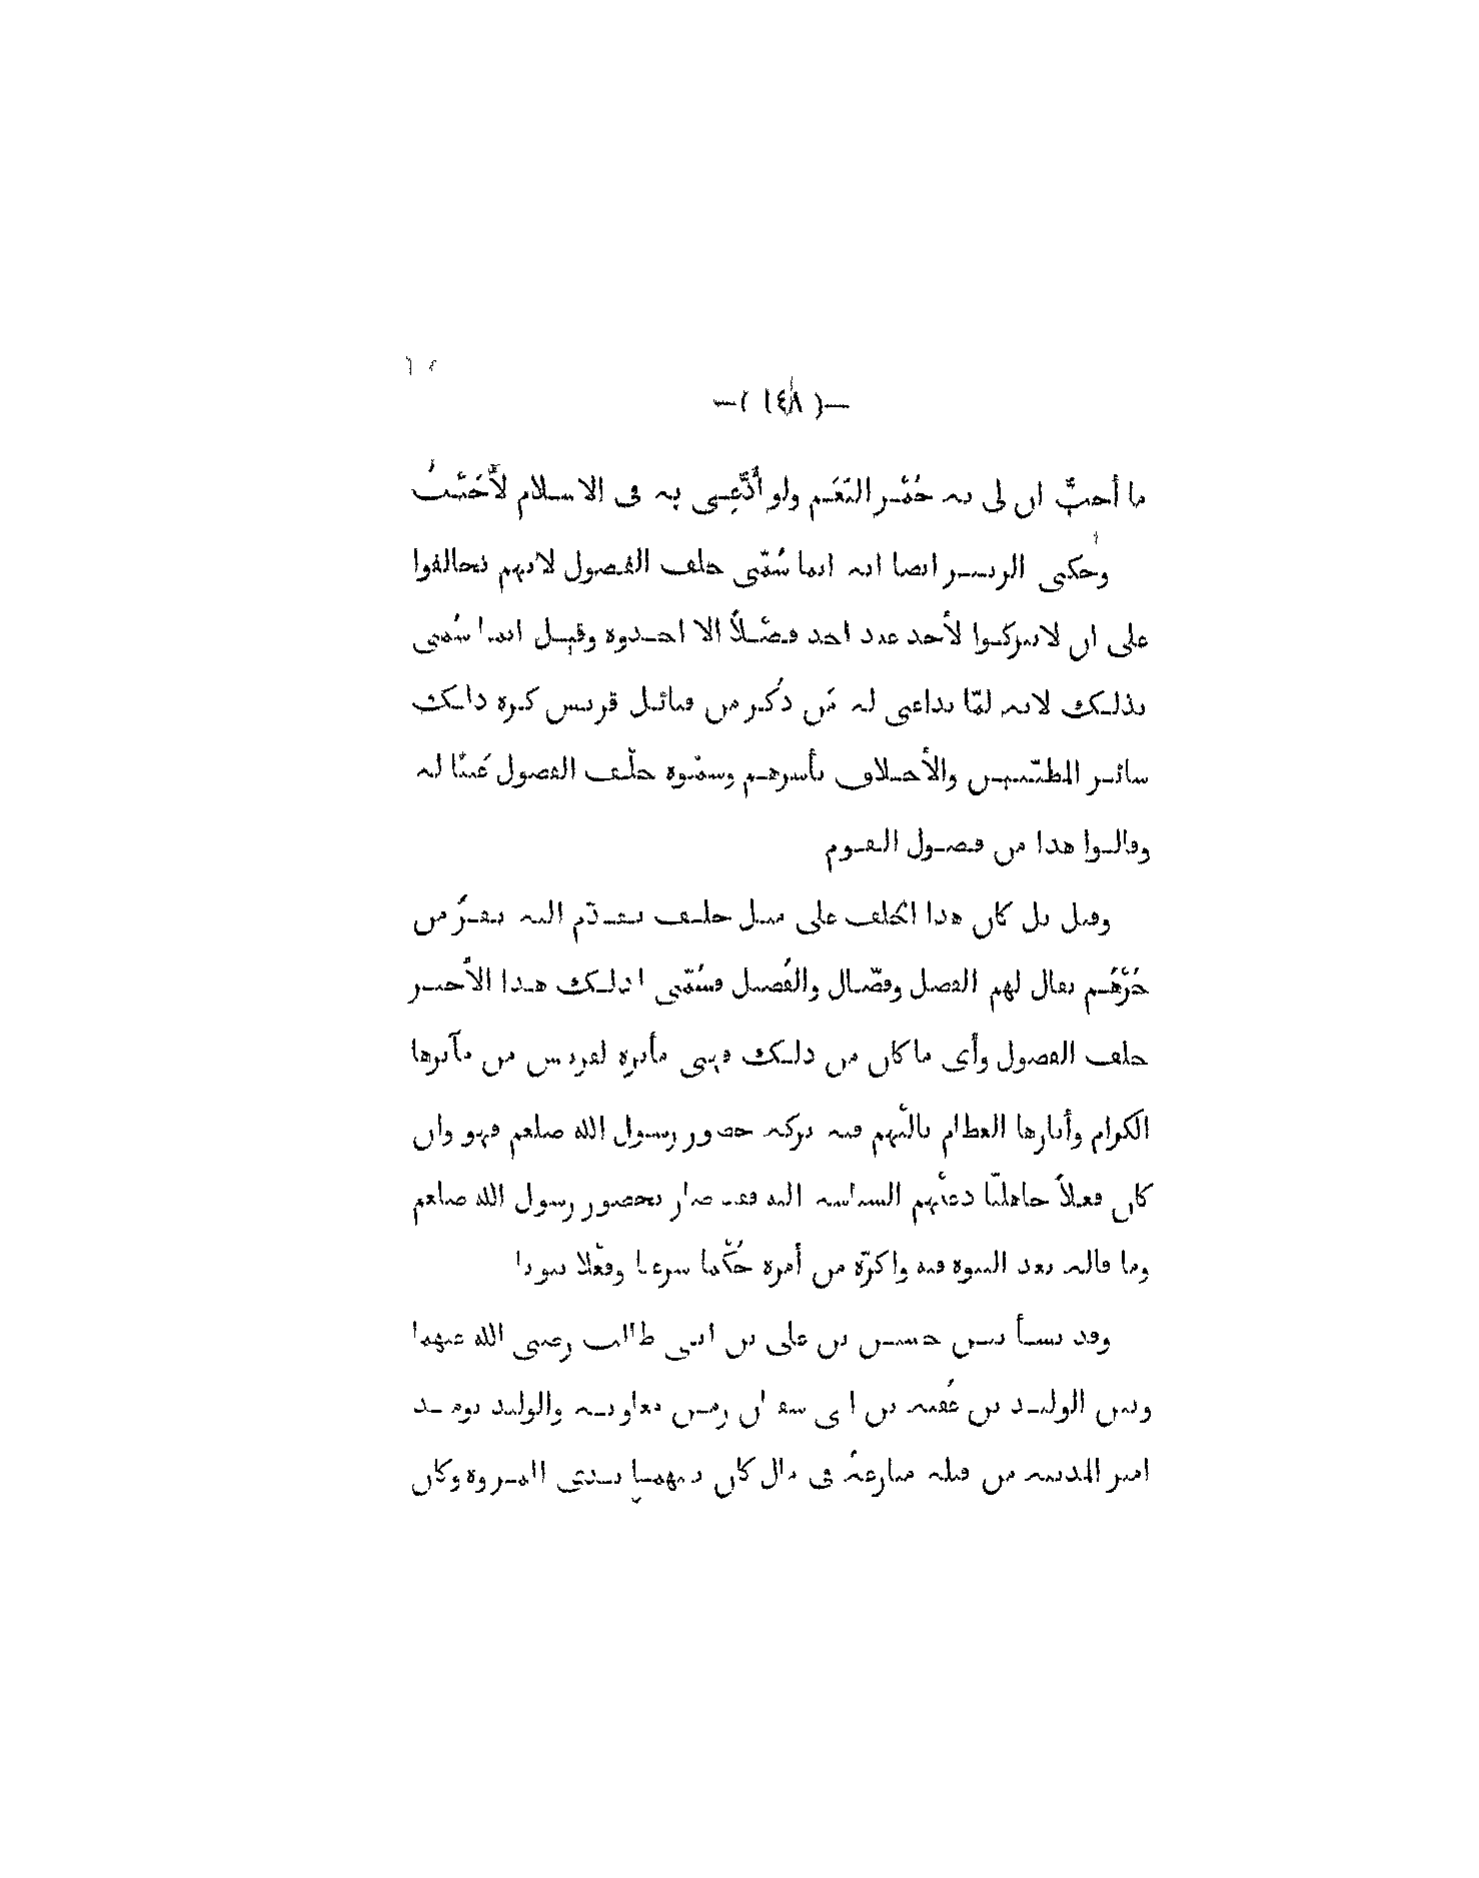 —( ١٤٨ )—
ما أحبّ ان لى به حُمْر النَعَم ولو أُدّعِى به فى الاسلام لأَجَبْتُ
وحكى الزبير ايضا انه انما سُمّى حلف الفضول لانهم تحالفوا
على ان لا يتركوا لأحد عند احد فضْلاً الا اخذوه وقيل انما سُمى
بذلك لانه لمّا تداعى له مَن ذُكر من قبائل قريش كره ذلك
سائر المطيّبين والأحلاف بأسرهم وسمّوه حلْف الفضول عَيْبًا له
وقالوا هذا من فضول القوم
وقيل بل كان هذا الحلف على مثل حلف تقدّم اليه نفرٌ من
جُرْهُم يقال لهم الفضل وفضّال والفُضيل فسُمّى لذلك هذا الأخير
حلف الفضول وأى ما كان من ذلك فهى مأثرة لقريش من مآثرها
الكرام وأثارها العظام نالتْهم فيه بركه حضور رسول الله صلعم فهو وان
كان فعلاً جاهليّا دعتْهم السياسه اليه فقد صار بحضور رسول الله صلعم
وما قاله بعد النبوة فيه واكدّه من أمره حُكْما شرعيا وفعْلا نبويا
وقد نشأ بين حسين بن على بن ابى طالب رضى الله عنهما
وبين الوليد بن عُقبه بن ابى سفيان زمن معاويه والوليد يومئذ
امير المدينه من قبله منازعهٌ فى مال كان بينهما بذى المروة وكان